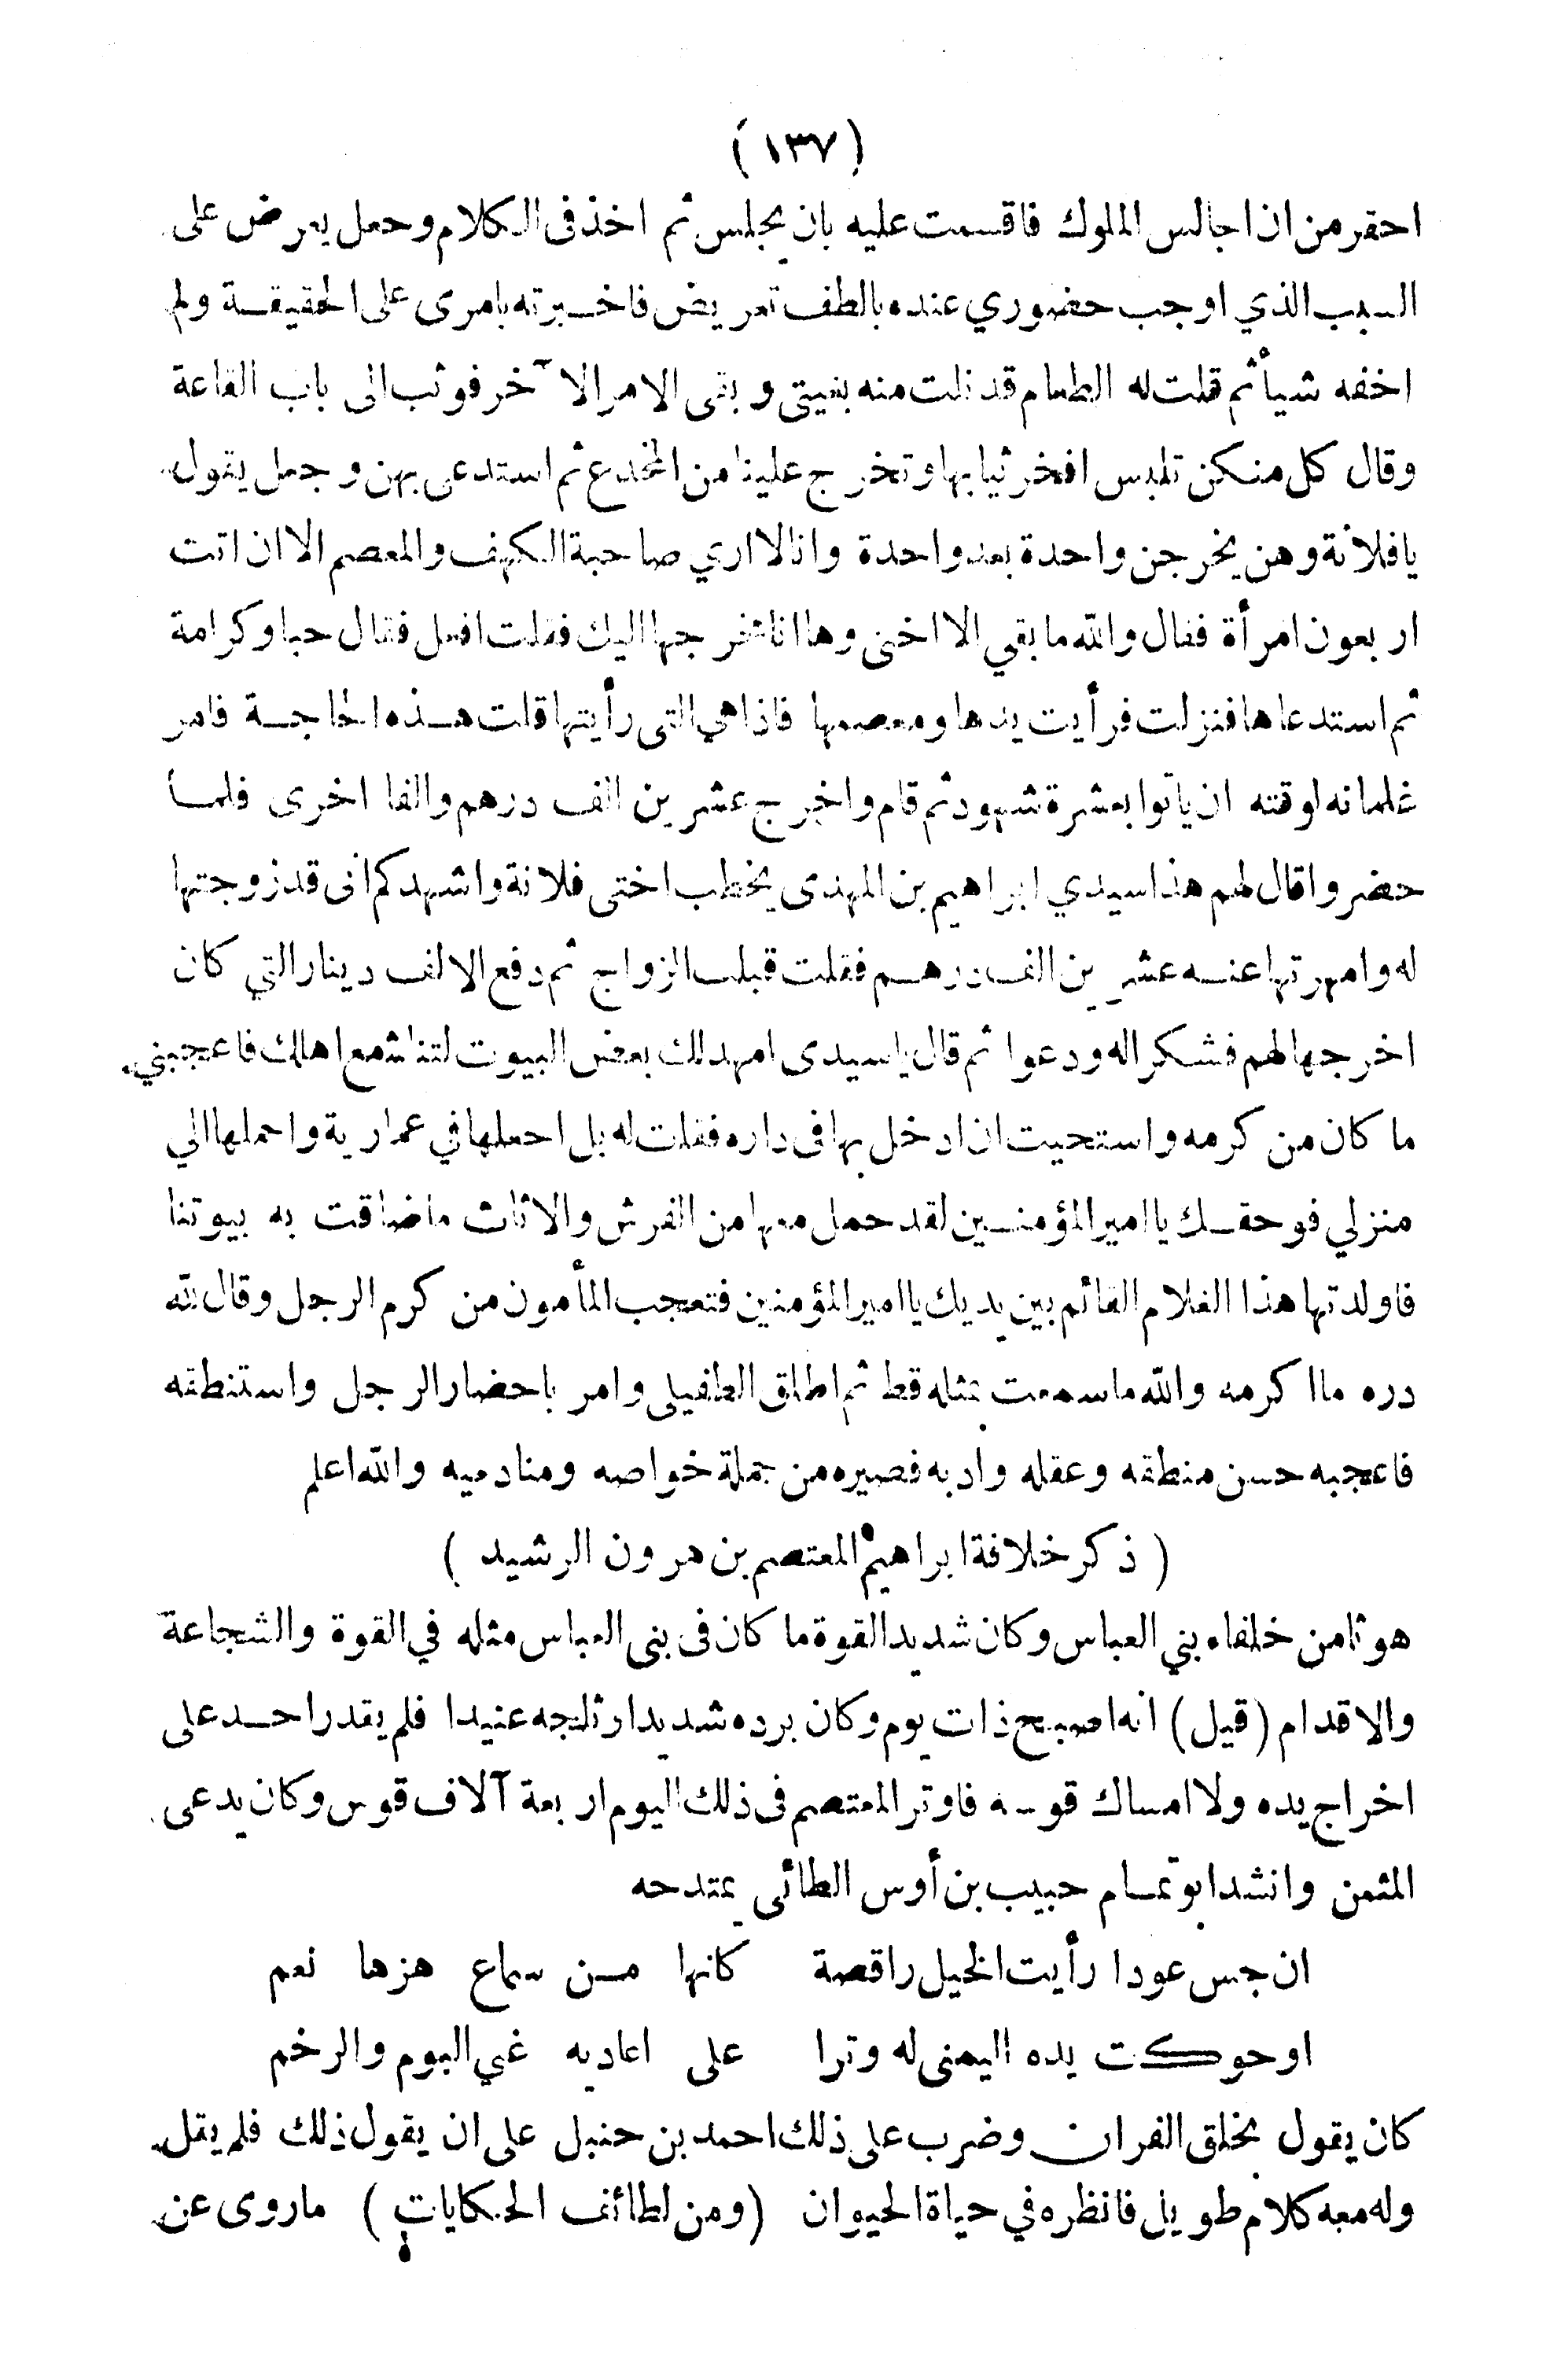 (١٣٧)
احقر من ان اجالس الملوك فاقسمت عليه بان يجلس ثم اخذ فى الكلام وجعل يعرض على
السبب الذي اوجب حضوري عنده بالطف تعريض فاخبرته بامرى على الحقيقة ولم
اخفه شيأ ثم قلت له الطعام قد نلت منه بغيتى و بقى الامر الآخر فوثب الى باب القاعة
وقال كل منكن تلبس افخر ثيابها وتخرج علينا من المخدع ثم استدعى بهن وجعل يقول
يافلانة وهن يخرجن واحدة بعد واحدة وانا لا اري صاحبة الكهف والمعصم الا ان اتت
اربعون امرأة فقال والله ما بقي الا اختى وها انا مخرجها اليك فقلت افعل فقال حبا وكرامة
ثم استدعاها فنزلت فرأيت يدها ومعصمها فاذا هي التى رأيتها قلت هذه الحاجة فامر
غلمانه لوقته ان ياتوا بعشرة شهود ثم قام واخرج عشرين الف درهم والفا اخرى فلما
حضروا قال لهم هذا سيدي ابراهيم بن المهدى يخطب اختى فلانة واشهدكم انى قد زوجتها
له وامهرتها عنه عشرين الف درهم فقلت قبلت الزواج ثم دفع الالف دينار التي كان
اخرجها لهم فشكرا له ودعوا ثم قال ياسيدى امهد لك بعض البيوت لتنام مع اهلك فاعجبني
ما كان من كرمه واستحيت ان ادخل بها فى داره فقلت له بل اجعلها في عمارية واحملها الي
منزلي فوحقك يا امير المؤمنين لقد حمل معها من الفرش والاثاث ما ضاقت به بيوتنا
فاولدتها هذا الغلام القائم بين يديك يا امير المؤمنين فتعجب المأمون من كرم الرجل وقال لله
دره ما اكرمه والله ما سمعت بمثله قط ثم اطلق الطفيلى وامر باحضار الرجل واستنطقه
فاعجبه حسن منطقه وعقله وادبه فصيره من جملة خواصه ومنادميه والله اعلم
( ذكر خلافة ابراهيم المعتصم بن هرون الرشيد )
هو ثامن خلفاء بني العباس وكان شديد القوة ما كان فى بنى العباس مثله في القوة والشجاعة
والاقدام (قيل) انه اصبح ذات يوم وكان برده شديدا وثلجه عنيدا فلم يقدر احد على
اخراج يده ولا امساك قوسه فاوتر المعتصم فى ذلك اليوم اربعة آلاف قوس وكان يدعى
المثمن وانشد ابو تمام حبيب بن أوس الطائى يمتدحه
ان جس عودا رأيت الخيل راقصة كانها من سماع هزها نعم
او حوكت يده اليمنى له وترا على اعاديه غي البوم والرخم
كان يقول بخلق القران وضرب على ذلك احمد بن حنبل على ان يقول ذلك فلم يقل
وله معه كلام طويل فانظره في حياة الحيوان (ومن لطائف الحكايات) ما روى عن